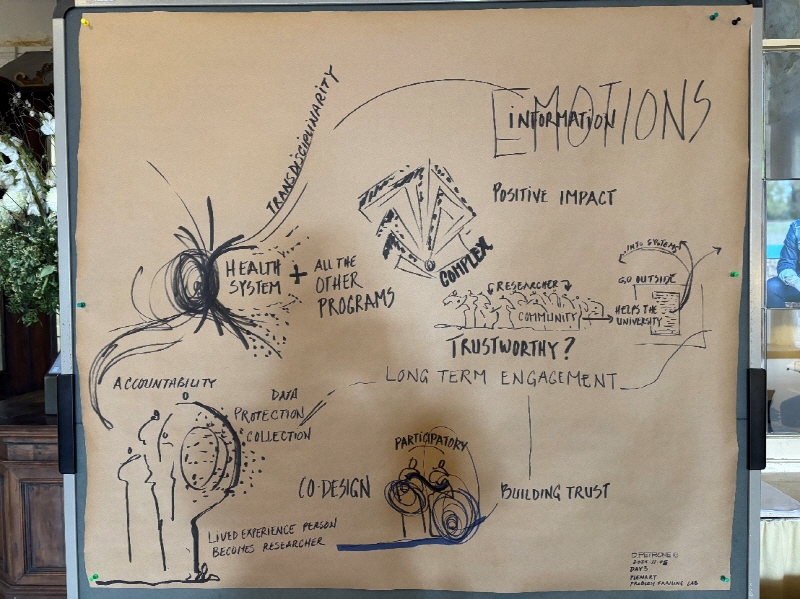 TRANSDISCIPLINARITY
EMOTIONS
INFORMATION
POSITIVE IMPACT
COMPLEX
HEALTH
SYSTEM
+
ALL THE
OTHER
PROGRAMS
RESEARCHER
COMMUNITY
INTO SYSTEMS
GO OUTSIDE
HELPS THE
UNIVERSITY
TRUSTWORTHY?
LONG TERM ENGAGEMENT
ACCOUNTABILITY
DATA
PROTECTION
COLLECTION
PARTICIPATORY
CO-DESIGN
BUILDING TRUST
LIVED EXPERIENCE PERSON
BECOMES RESEARCHER
DAY 3
PLENARY
PROBLEM FRAMING LAB